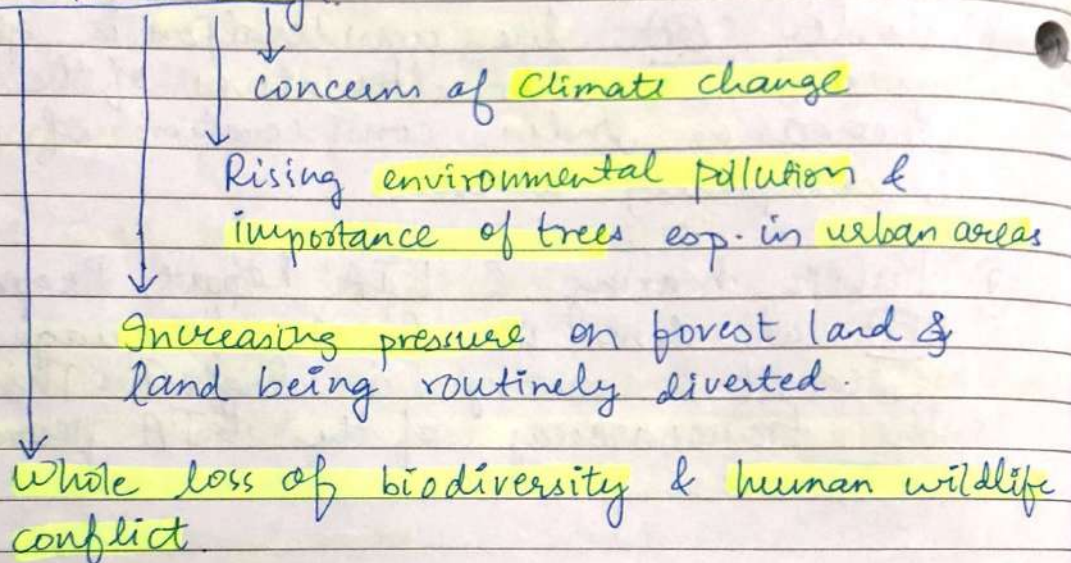 concerns of Climate change
Rising environmental pollution &
importance of trees esp. in urban areas
Increasing pressure on forest land &
land being routinely diverted.
Whole loss of biodiversity & human wildlife
conflict.